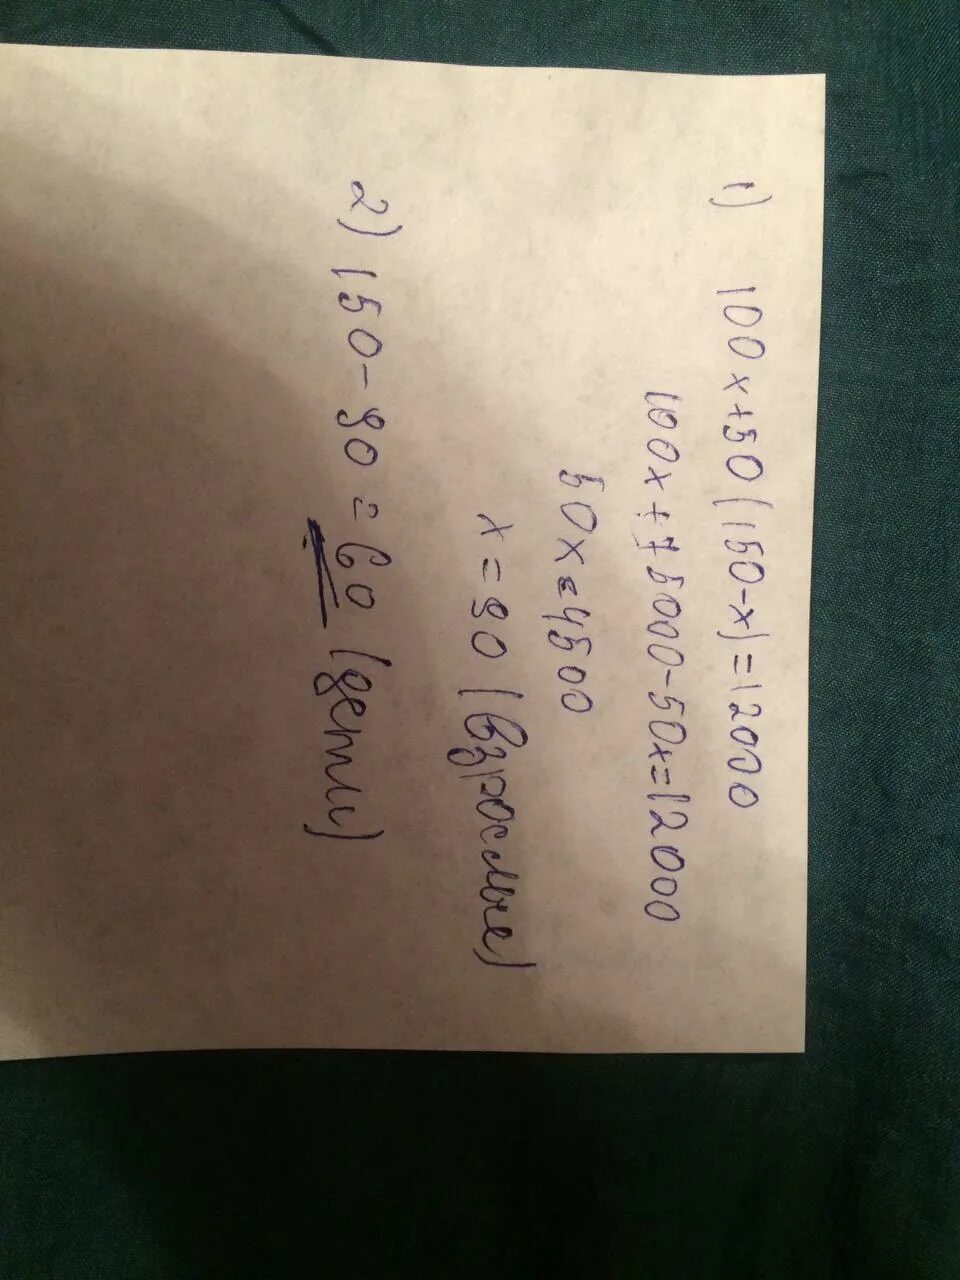 1) 100x+50(150-x)=12000
100x+75000-50x=12000
50x=4500
x=90 (взрослые)
2) 150-90=60 (дети)